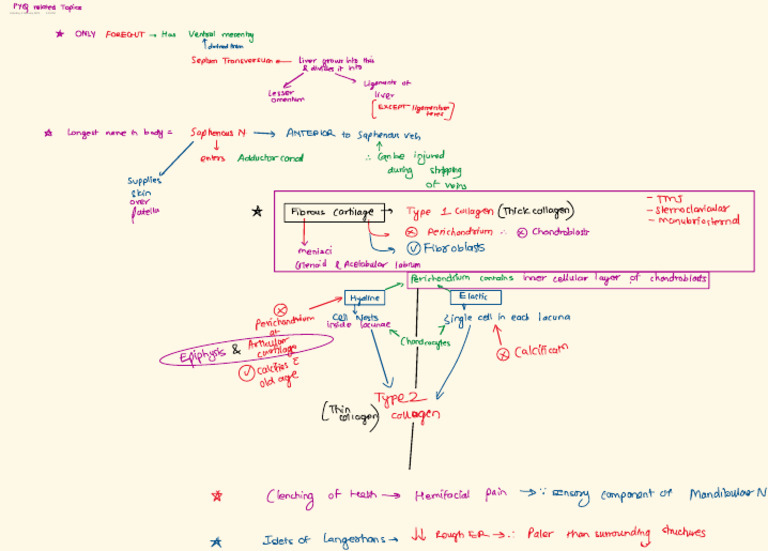 PYQ related Topics
ONLY FOREGUT → Has Ventral mesentry
derived from
Septum Transversum ← Liver grows into this
& divides it into
Lesser
omentum
Ligaments of
liver
[EXCEPT ligamentum
teres]
Longest nerve in body = Saphenous N → ANTERIOR to Saphenous vein
enters Adductor canal
∴ Can be injured
during stripping
of veins
Supplies
skin
over
Patella
Fibrous cartilage → Type 1 Collagen (Thick collagen)
Perichondrium ∴ Chondroblast
Fibroblasts
menisci
Glenoid & Acetabular labrum
- TMJ
- Sternoclavicular
- manubriosternal
Perichondrium contains inner cellular layer of chondroblasts
Hyaline
Elastic
Perichondrium
at
Articular
cartilage
Epiphysis &
Cell Nests
inside lacunae
Single cell in each lacuna
Chondrocytes
Calcificatn
Calcifies in
old age
Type 2
collagen
(Thin
collagen)
Clenching of teeth → Hemifacial pain → ∵ sensory component of Mandibular N
Islets of Langerhans → ↓↓ Rough ER → ∴ Paler than surrounding structures